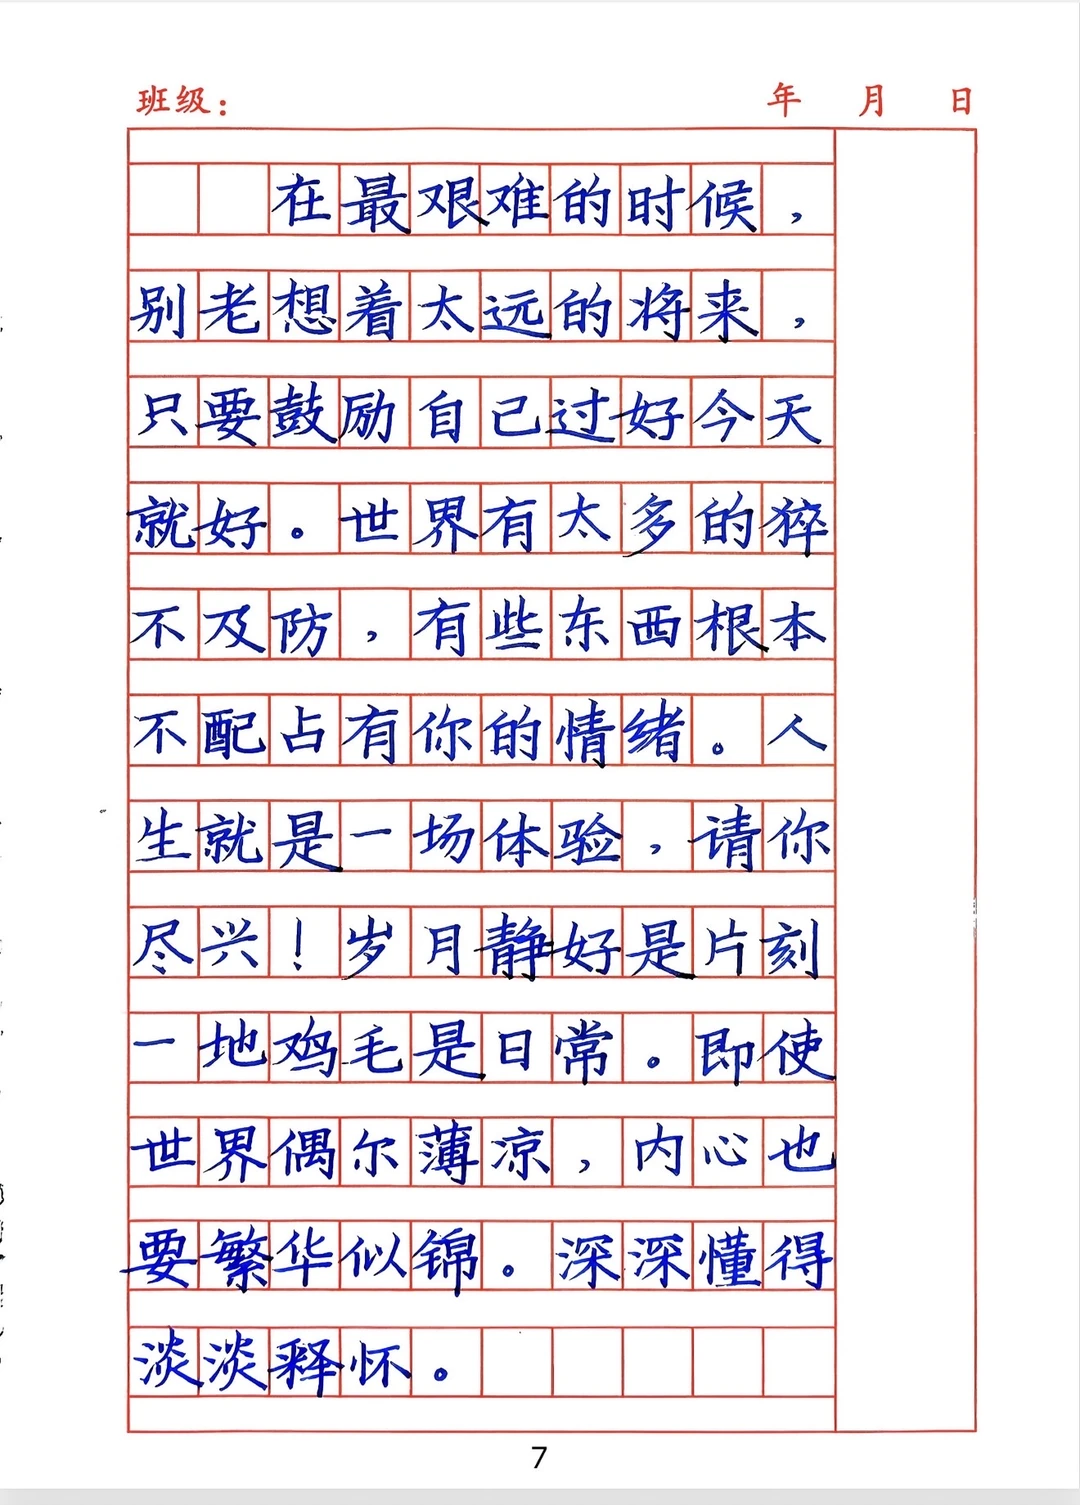 班级： 年 月 日
在最艰难的时候，
别老想着太远的将来，
只要鼓励自己过好今天
就好。世界有太多的猝
不及防，有些东西根本
不配占有你的情绪。人
生就是一场体验，请你
尽兴！岁月静好是片刻
一地鸡毛是日常。即使
世界偶尔薄凉，内心也
要繁华似锦。深深懂得
淡淡释怀。
7